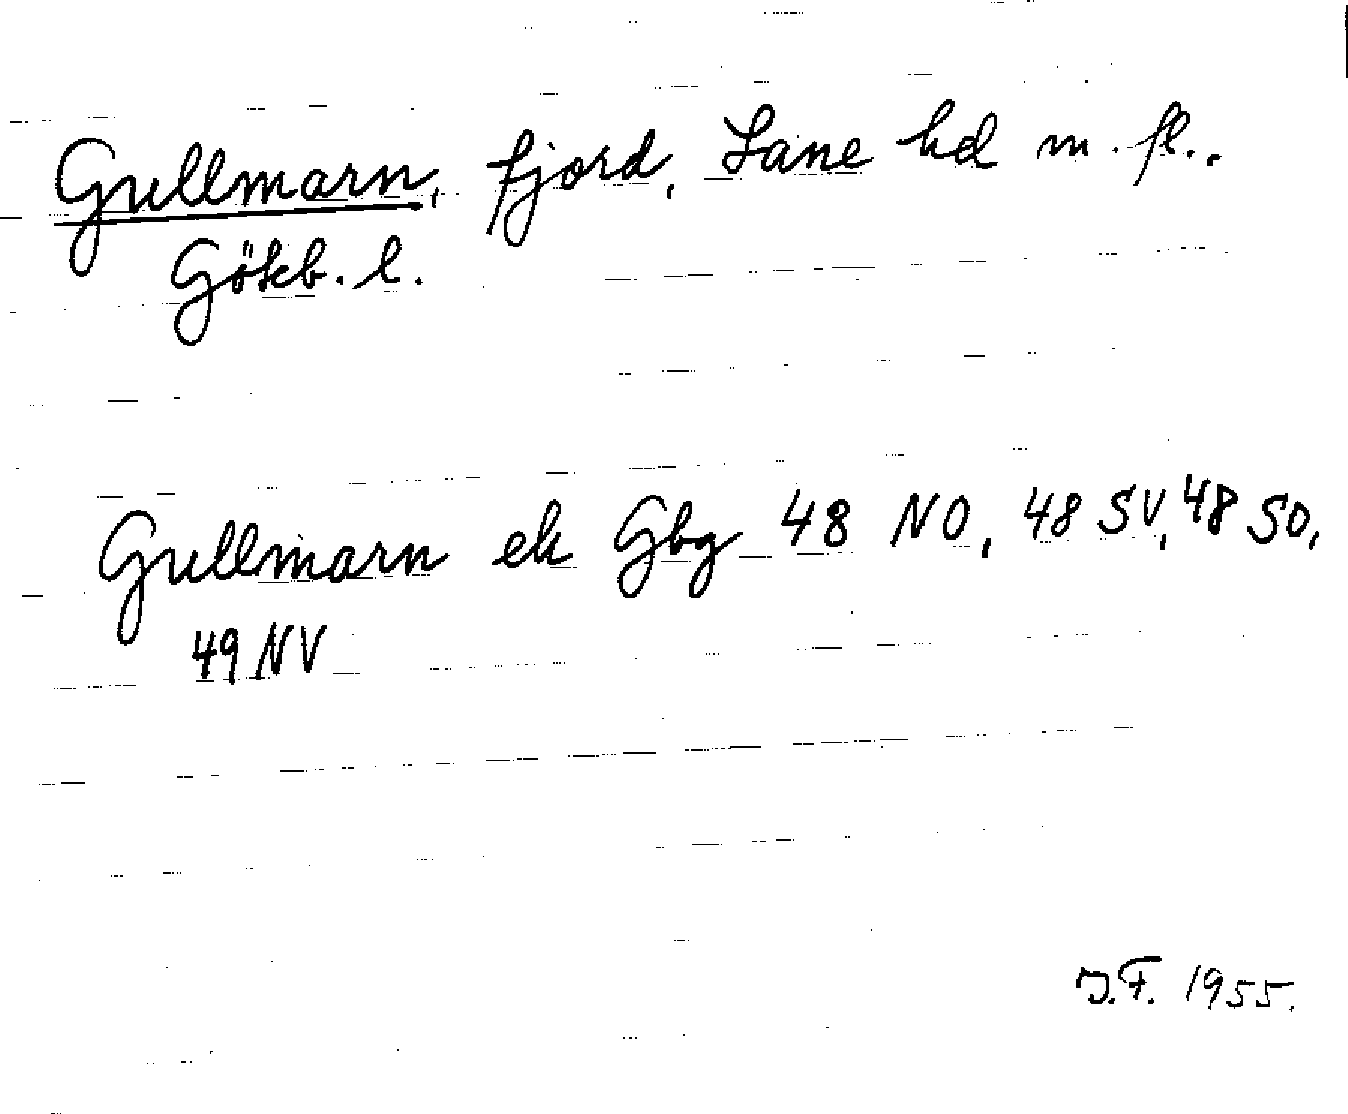 Gullmarn, fjord, Lane hd m. fl..
Gökb. l.
Gullmarn ek Gbg 48 NO, 48 SV, 48 SO,
49 NV
J.F. 1955.